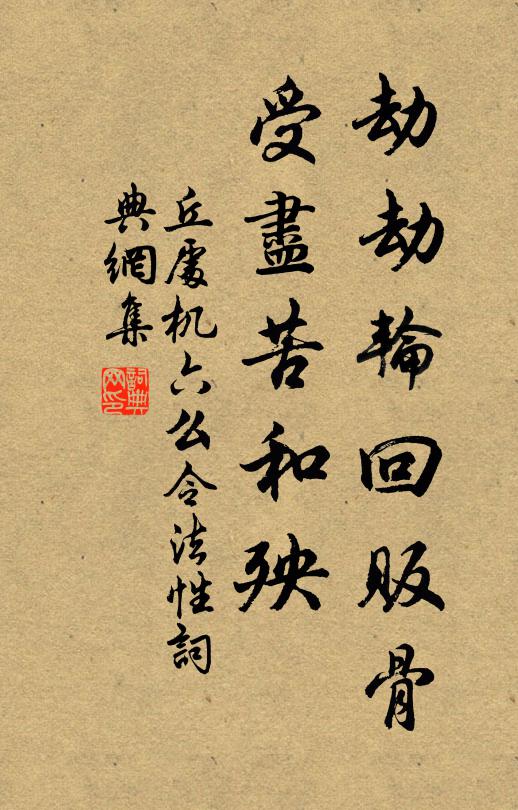 劫劫輪回販骨
受盡苦和殃
丘處机六么令法性詞
典網集
詞典網印